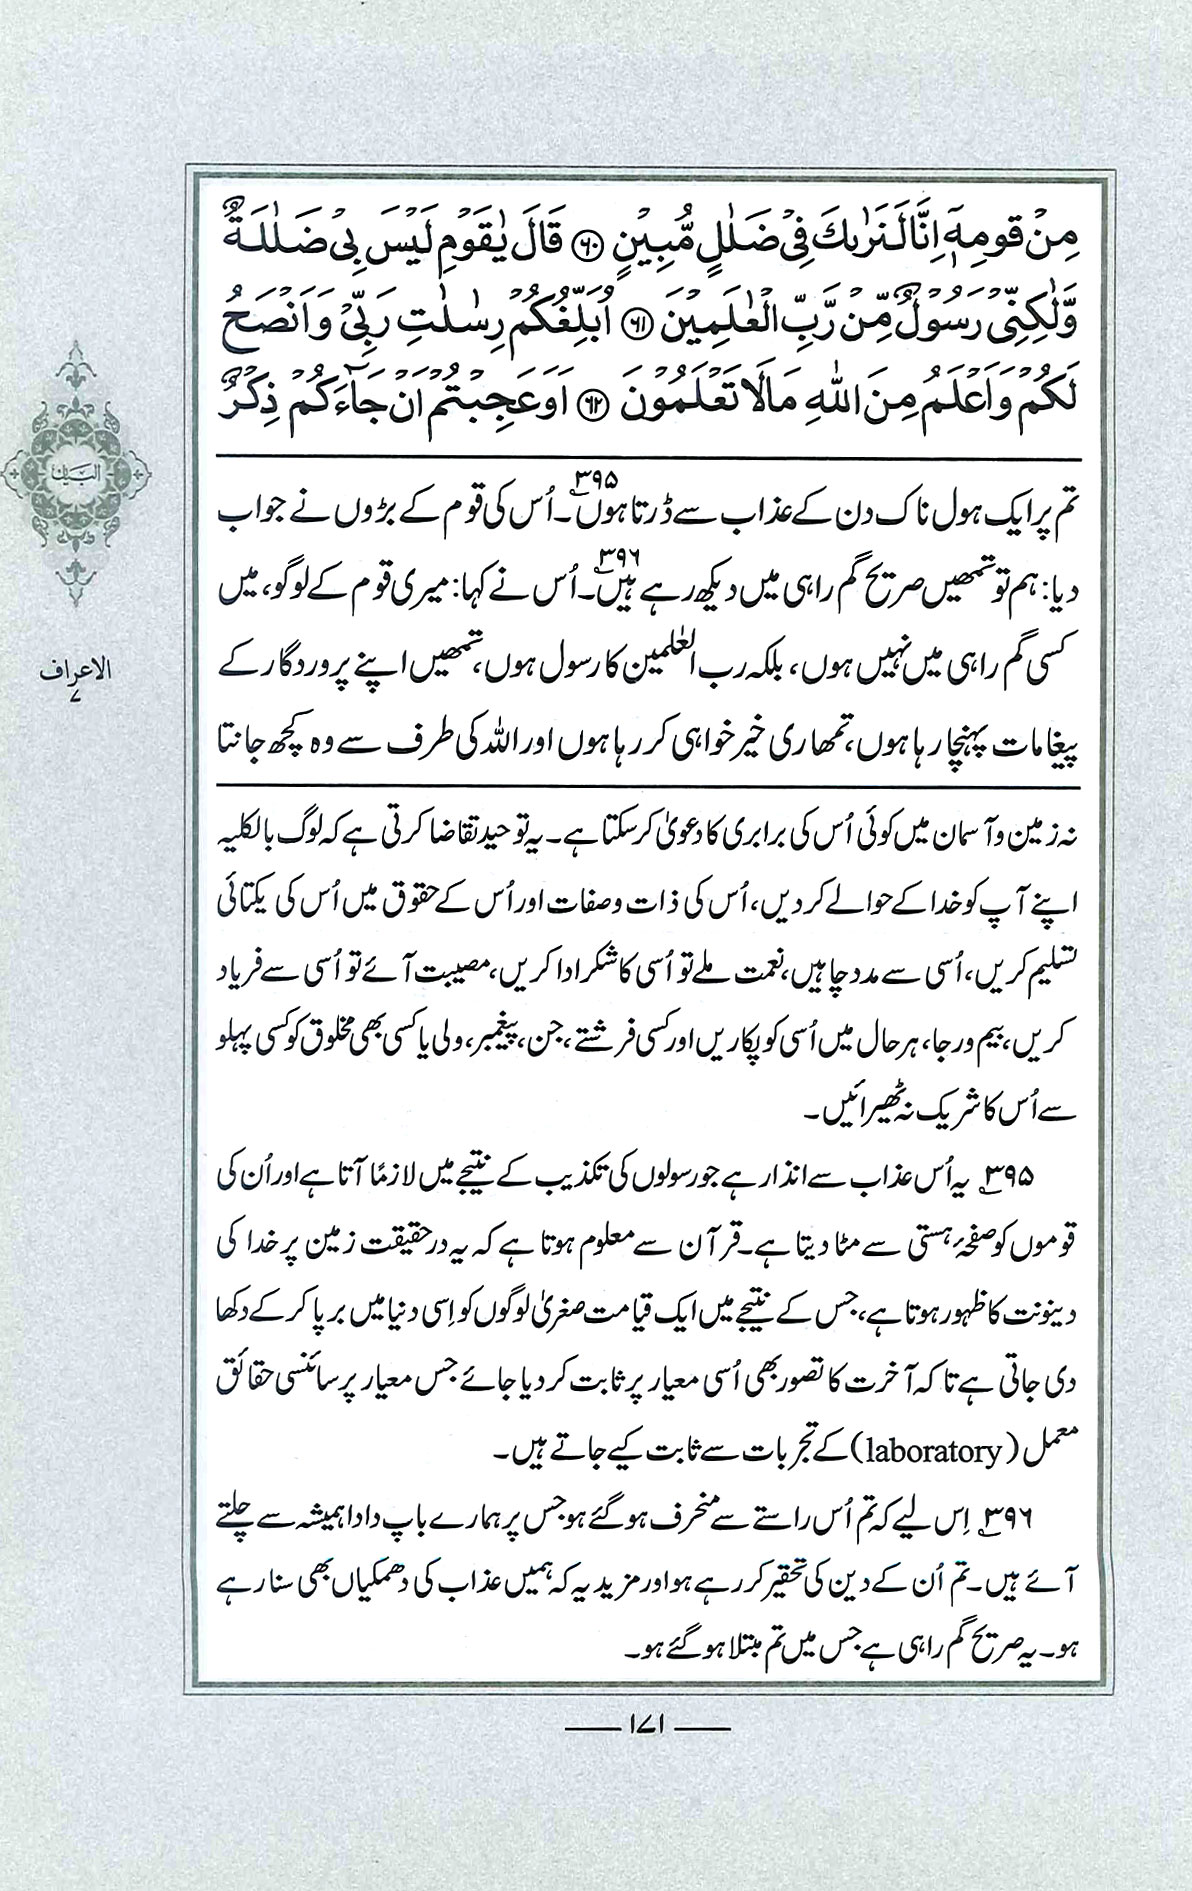 مِنْ قَوْمِهٖٓ اِنَّا لَنَرٰىكَ فِيْ ضَلٰلٍ مُّبِيْنٍ ﴿۶۰﴾ قَالَ يٰقَوْمِ لَيْسَ بِيْ ضَلٰلَةٌ
وَّلٰكِنِّيْ رَسُوْلٌ مِّنْ رَّبِّ الْعٰلَمِيْنَ ﴿۶۱﴾ اُبَلِّغُكُمْ رِسٰلٰتِ رَبِّيْ وَاَنْصَحُ
لَكُمْ وَاَعْلَمُ مِنَ اللّٰهِ مَا لَا تَعْلَمُوْنَ ﴿۶۲﴾ اَوَعَجِبْتُمْ اَنْ جَآءَكُمْ ذِكْرٌ
تم پر ایک ہول ناک دن کے عذاب سے ڈرتا ہوں۳۹۵۔ اُس کی قوم کے بڑوں نے جواب
دیا: ہم تو تمھیں صریح گم راہی میں دیکھ رہے ہیں۳۹۶۔ اُس نے کہا: میری قوم کے لوگو، میں
کسی گم راہی میں نہیں ہوں، بلکہ رب العٰلمین کا رسول ہوں، تمھیں اپنے پروردگار کے
پیغامات پہنچا رہا ہوں، تمھاری خیر خواہی کر رہا ہوں اور اللہ کی طرف سے وہ کچھ جانتا
البیان
الاعراف
۷
نہ زمین و آسمان میں کوئی اُس کی برابری کا دعویٰ کر سکتا ہے۔ یہ توحید تقاضا کرتی ہے کہ لوگ بالکلیہ
اپنے آپ کو خدا کے حوالے کر دیں، اُس کی ذات و صفات اور اُس کے حقوق میں اُس کی یکتائی
تسلیم کریں، اُسی سے مدد چاہیں، نعمت ملے تو اُسی کا شکر ادا کریں، مصیبت آئے تو اُسی سے فریاد
کریں، بیم و رجا، ہر حال میں اُسی کو پکاریں اور کسی فرشتے، جن، پیغمبر، ولی یا کسی بھی مخلوق کو کسی پہلو
سے اُس کا شریک نہ ٹھیرائیں۔
۳۹۵؎ یہ اُس عذاب سے انذار ہے جو رسولوں کی تکذیب کے نتیجے میں لازماً آتا ہے اور اُن کی
قوموں کو صفحۂ ہستی سے مٹا دیتا ہے۔ قرآن سے معلوم ہوتا ہے کہ یہ درحقیقت زمین پر خدا کی
دینونت کا ظہور ہوتا ہے، جس کے نتیجے میں ایک قیامت صغریٰ لوگوں کو اِسی دنیا میں برپا کر کے دکھا
دی جاتی ہے تاکہ آخرت کا تصور بھی اُسی معیار پر ثابت کر دیا جائے جس معیار پر سائنسی حقائق
معمل (laboratory) کے تجربات سے ثابت کیے جاتے ہیں۔
۳۹۶؎ اِس لیے کہ تم اُس راستے سے منحرف ہو گئے ہو جس پر ہمارے باپ دادا ہمیشہ سے چلتے
آئے ہیں۔ تم اُن کے دین کی تحقیر کر رہے ہو اور مزید یہ کہ ہمیں عذاب کی دھمکیاں بھی سنا رہے
ہو۔ یہ صریح گم راہی ہے جس میں تم مبتلا ہو گئے ہو۔
۱۷۱